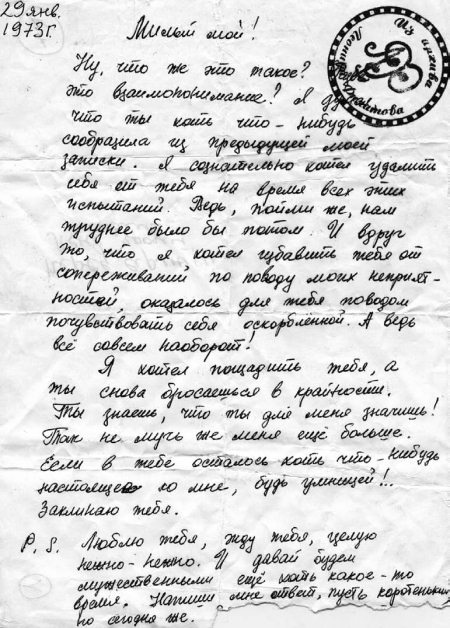 29 янв.
1973 г.
Милый мой!
Из архива
Леонида
Ну, что же это такое?
Это взаимопонимание? Я ду
что ты хоть что-нибудь
сообразила из предыдущей моей
записки. Я сознательно хотел удалить
себя от тебя на время всех этих
испытаний. Ведь, пойми же, нам
труднее было бы потом. И вдруг
то, что я хотел избавить тебя от
сопереживаний по поводу моих неприят-
ностей, оказалось для тебя поводом
почувствовать себя оскорбленной. А ведь
всё совсем наоборот!
Я хотел пощадить тебя, а
ты снова бросаешься в крайности.
Ты знаешь, что ты для меня значишь!
Так не мучь же меня ещё больше.
Если в тебе осталось хоть что-нибудь
настоящее ко мне, будь умницей!..
Заклинаю тебя.
P. S. Люблю тебя, жду тебя, целую
нежно-нежно. И давай будем
мужественными ещё хоть какое-то
время. Напиши мне ответ, пусть коротеньк
но сегодня же.